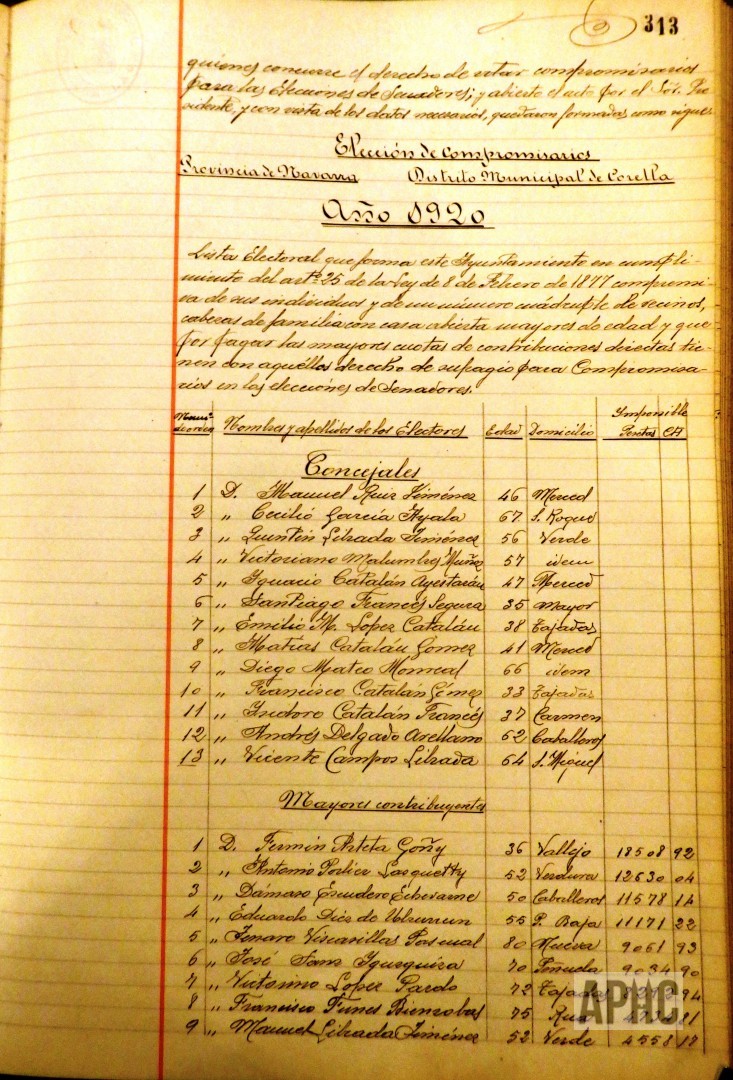 313
quienes concurre el derecho de votar compromisarios
para las Elecciones de Senadores; y abierto el acto por el Sor. Pre-
sidente, y con vista de los datos necesarios, quedaron formadas como sigue:
Elección de compromisarios
Provincia de Navarra Distrito Municipal de Corella
Año 1920
Lista Electoral que forma este Ayuntamiento en cumpli-
miento del artº 25 de la Ley de 8 de Febrero de 1877 comprensi-
va de sus individuos y de un número cuádruple de vecinos,
cabezas de familia con casa abierta mayores de edad y que
por pagar las mayores cuotas de contribuciones directas tie-
nen con aquéllos derecho de sufragio para Compromisa-
rios en las elecciones de Senadores.
Imponible
de orden Nombres y apellidos de los Electores Edad Domicilio Pesetas Cts
Concejales
1 D. Manuel Ruiz Jiménez 46 Merced
2 „ Cecilio García Ayala 67 S. Roque
3 „ Quintín Librada Jiménez 56 Verde
4 „ Victoriano Malumbres Muñoz 57 idem
5 „ Ignacio Catalán Ayestarán 47 Merced
6 „ Santiago Francés Segura 35 Mayor
7 „ Emilio M. López Catalán 38 Tajadas
8 „ Matías Catalán Gómez 41 Merced
9 „ Diego Mateo Monreal 66 idem
10 „ Francisco Catalán Gómez 33 Tajadas
11 „ Isidoro Catalán Francés 37 Carmen
12 „ Andrés Delgado Arellano 62 Caballeros
13 „ Vicente Campos Librada 64 S. Miguel
Mayores contribuyentes
1 D. Fermín Arteta Goñy 36 Vallejo 18508 92
2 „ Antonio Portier Lasquetty 52 Verdura 12630 04
3 „ Dámaso Escudero Echevarne 50 Caballeros 11578 14
4 „ Eduardo Diez de Ulzurrun 55 P. Baja 11171 22
5 „ Genaro Virarillas Pascual 80 Nueva 9061 93
6 „ José Sanz Igurquiza 70 Peñuela 9034 90
7 „ Victorino López Pardo 72 Tajadas 94
8 „ Francisco Funes Bienzobas 75
9 „ Manuel Librada Jiménez 52 Verde 4558 17
APHC